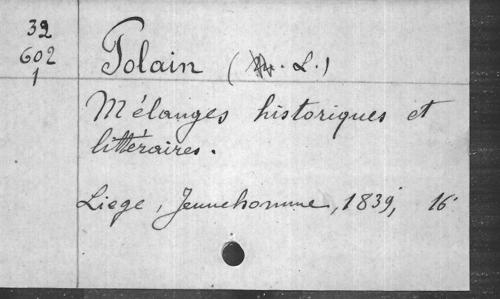 32
602
1
Polain (M. L.)
Mélanges historiques et
littéraires.
Liege, Jeunehomme, 1839, 16°